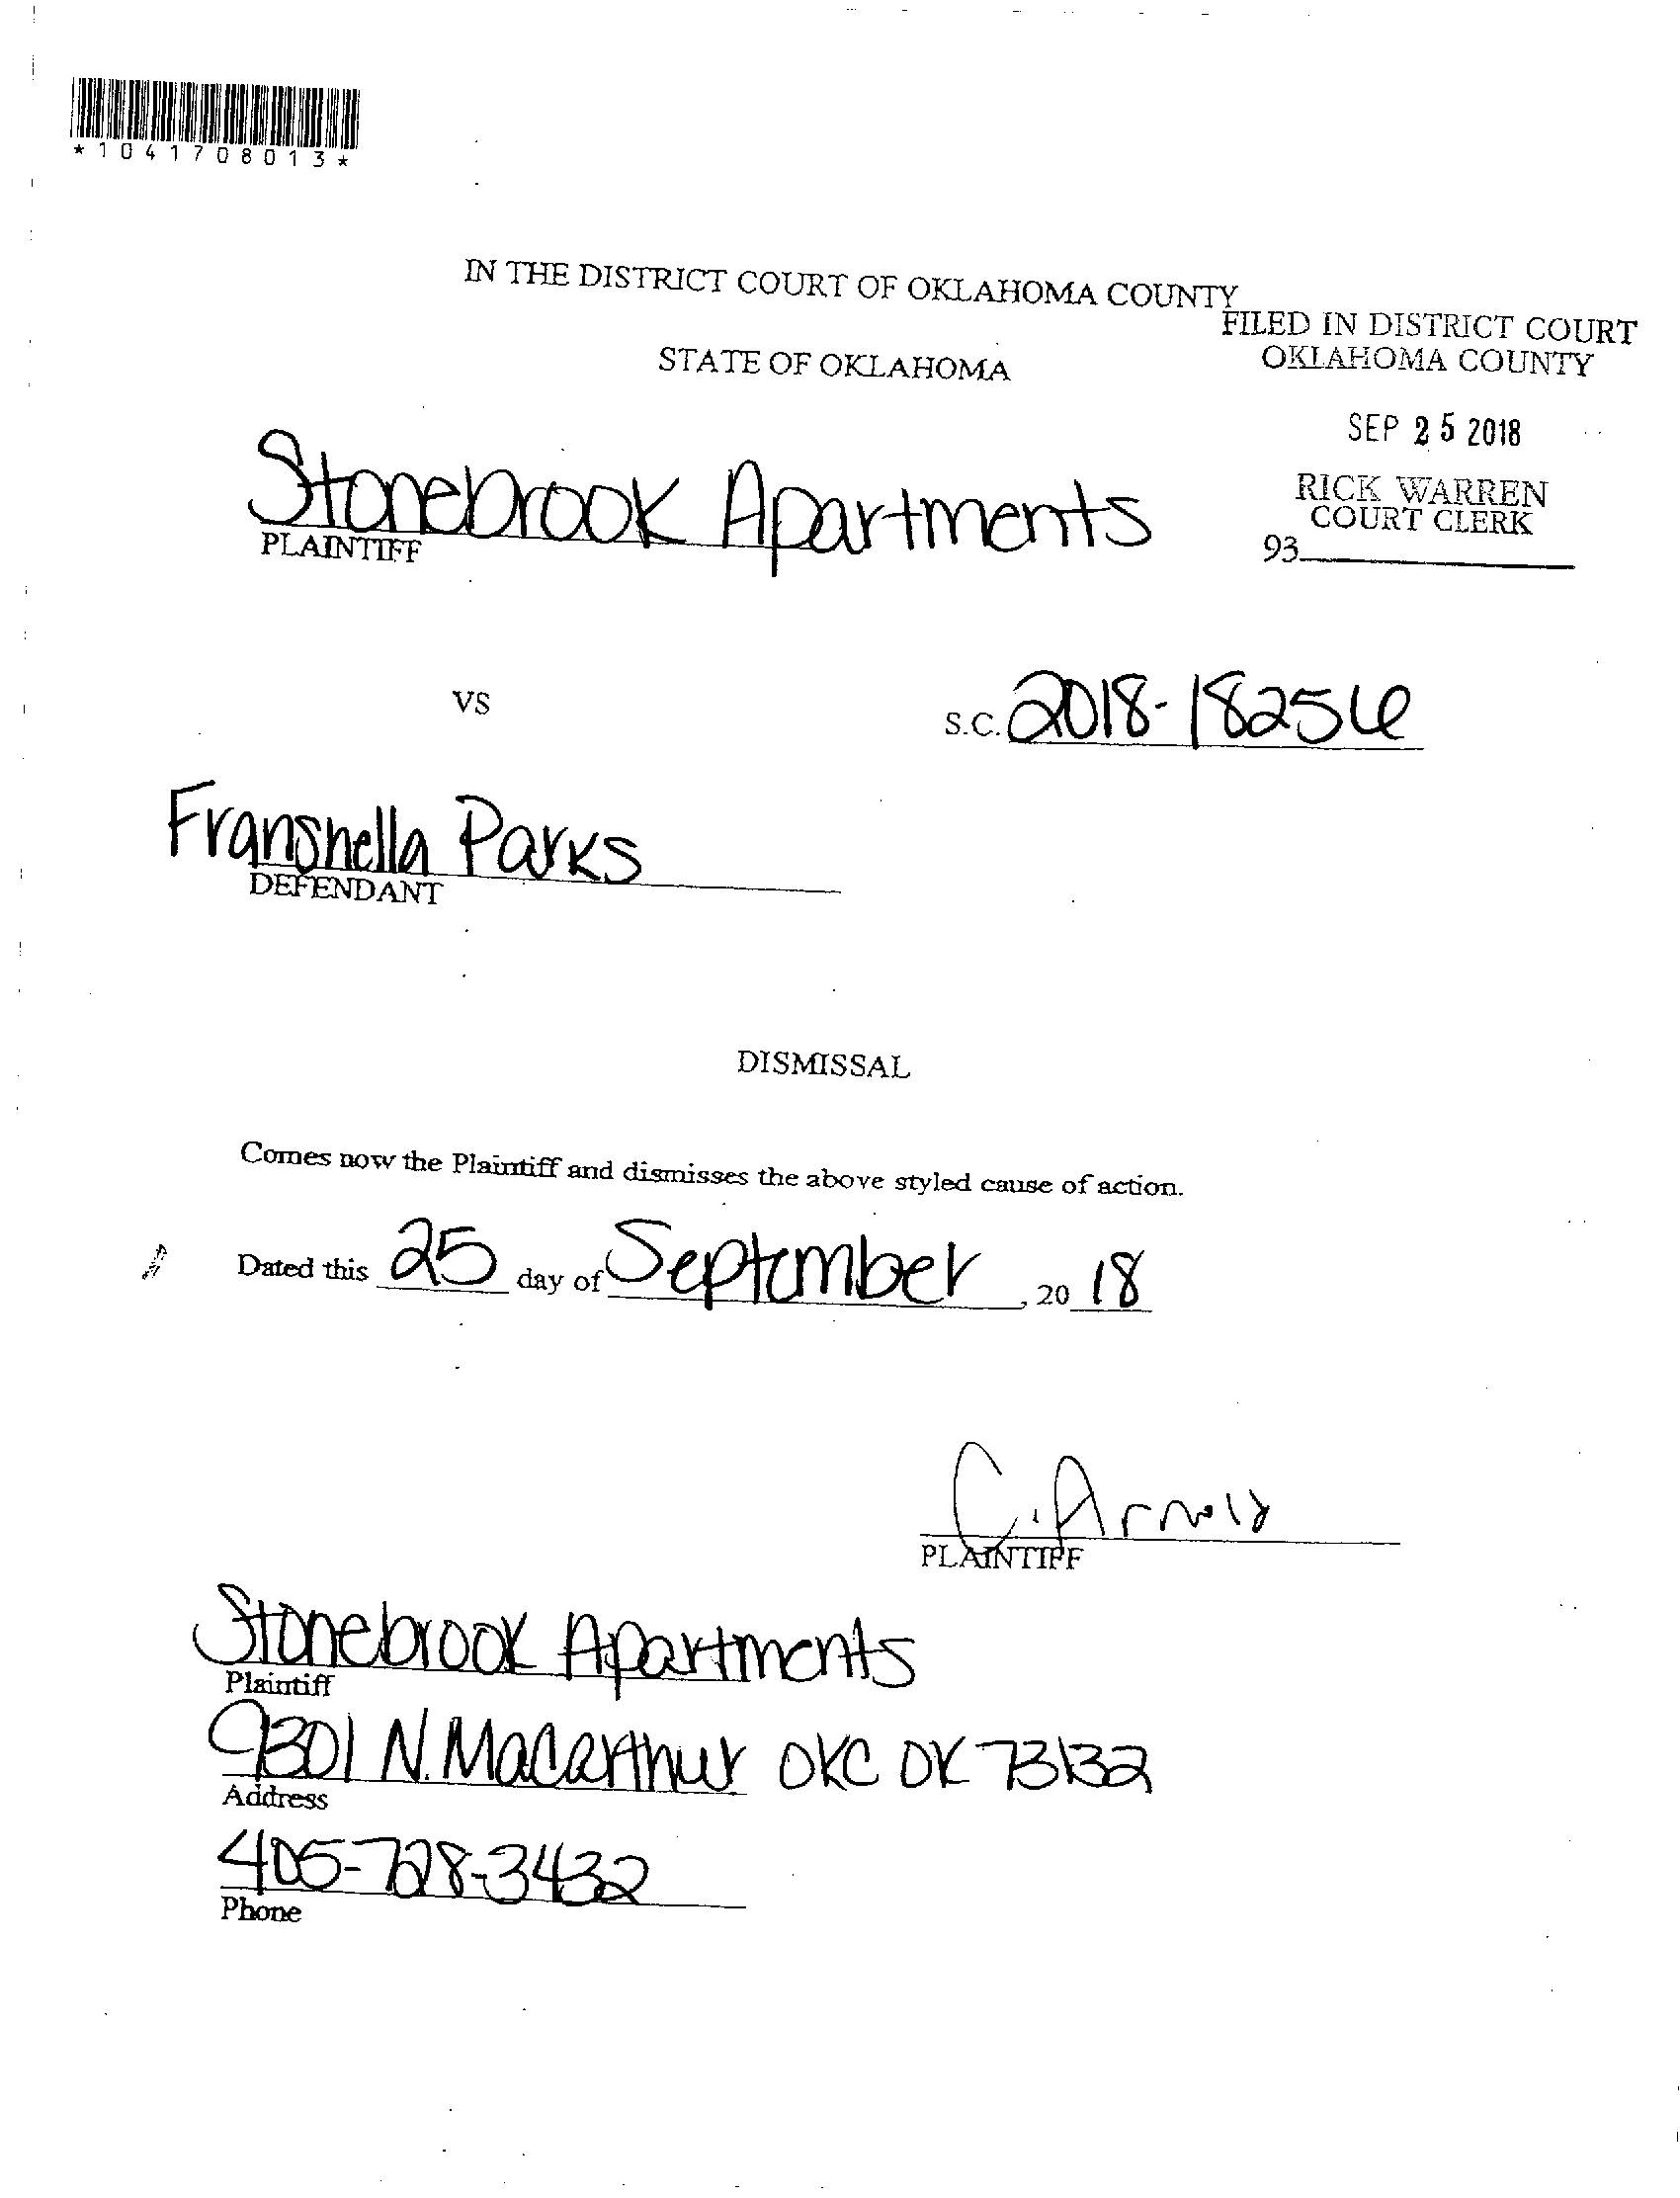 *1041708013*
IN THE DISTRICT COURT OF OKLAHOMA COUNTY
FILED IN DISTRICT COURT
OKLAHOMA COUNTY
STATE OF OKLAHOMA
SEP 25 2018
Stonebrook Apartments
PLAINTIFF
RICK WARREN
COURT CLERK
93
VS
S.C. 2018-18256
Franshella Parks
DEFENDANT
DISMISSAL
Comes now the Plaintiff and dismisses the above styled cause of action.
Dated this 25 day of September, 20 18
C. Arnold
PLAINTIFF
Stonebrook Apartments
Plaintiff
9301 N. Macarthur OKC OK 73132
Address
405-728-3432
Phone